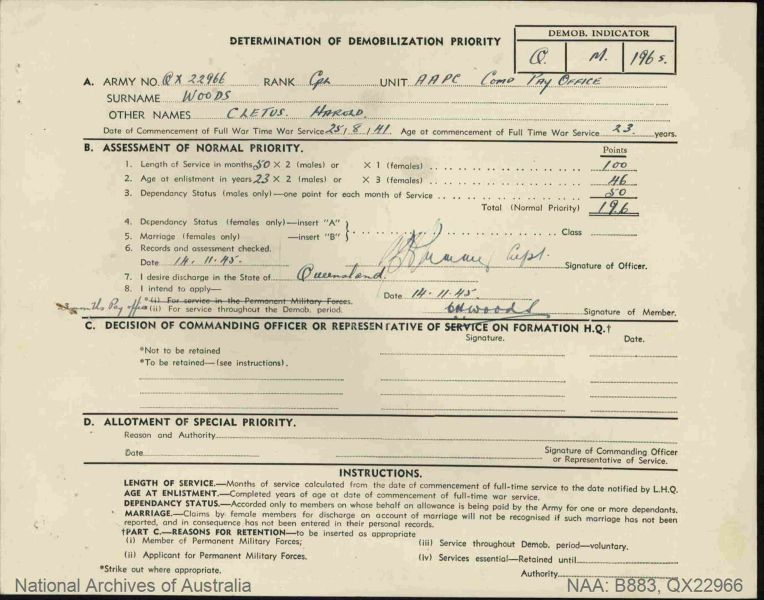 DETERMINATION OF DEMOBILIZATION PRIORITY
DEMOB. INDICATOR
Q. M. 196 s.
A. ARMY NO. QX 22966 RANK Cpl UNIT AAPC Comd Pay Office
SURNAME WOODS
OTHER NAMES CLETUS. HAROLD.
Date of Commencement of Full War Time War Service 25/8/41. Age at commencement of Full Time War Service 23 years.
B. ASSESSMENT OF NORMAL PRIORITY.
Points
1. Length of Service in months 50 × 2 (males) or × 1 (females) 100
2. Age at enlistment in years 23 × 2 (males) or × 3 (females) 46
3. Dependancy Status (males only)—one point for each month of Service 50
Total (Normal Priority) 196
4. Dependancy Status (females only)—insert "A"
5. Marriage (females only) —insert "B" } Class
6. Records and assessment checked.
Date 14.11.45. Capt. Signature of Officer.
7. I desire discharge in the State of Queensland
8. I intend to apply— Date 14.11.45.
*(i) For service in the Permanent Military Forces.
months Pay office (ii) For service throughout the Demob. period. CHWoods Signature of Member.
C. DECISION OF COMMANDING OFFICER OR REPRESENTATIVE OF SERVICE ON FORMATION H.Q.†
Signature. Date.
*Not to be retained
*To be retained—(see instructions).
D. ALLOTMENT OF SPECIAL PRIORITY.
Reason and Authority
Date Signature of Commanding Officer
or Representative of Service.
INSTRUCTIONS.
LENGTH OF SERVICE.—Months of service calculated from the date of commencement of full-time service to the date notified by L.H.Q.
AGE AT ENLISTMENT.—Completed years of age at date of commencement of full-time war service.
DEPENDANCY STATUS.—Accorded only to members on whose behalf on allowance is being paid by the Army for one or more dependants.
MARRIAGE.—Claims by female members for discharge on account of marriage will not be recognised if such marriage has not been
reported, and in consequence has not been entered in their personal records.
†PART C.—REASONS FOR RETENTION—to be inserted as appropriate
(i) Member of Permanent Military Forces; (iii) Service throughout Demob. period—voluntary.
(ii) Applicant for Permanent Military Forces. (iv) Services essential—Retained until
*Strike out where appropriate. Authority
National Archives of Australia NAA: B883, QX22966